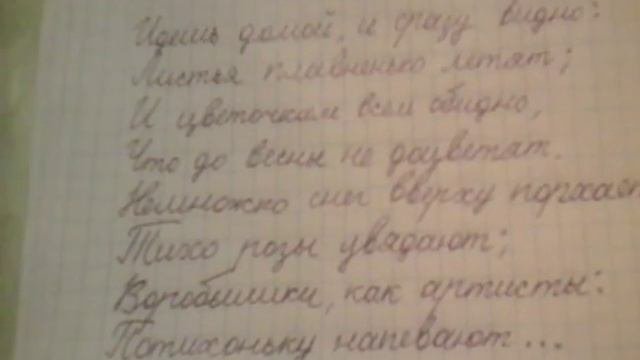 Идешь домой, и сразу видно:
Листья плавненько летят;
И цветочкам всем обидно,
Что до весны не доцветят.
Немножко снег вверху порхает
Тихо розы увядают;
Воробышки, как артисты:
Потихоньку напевают...